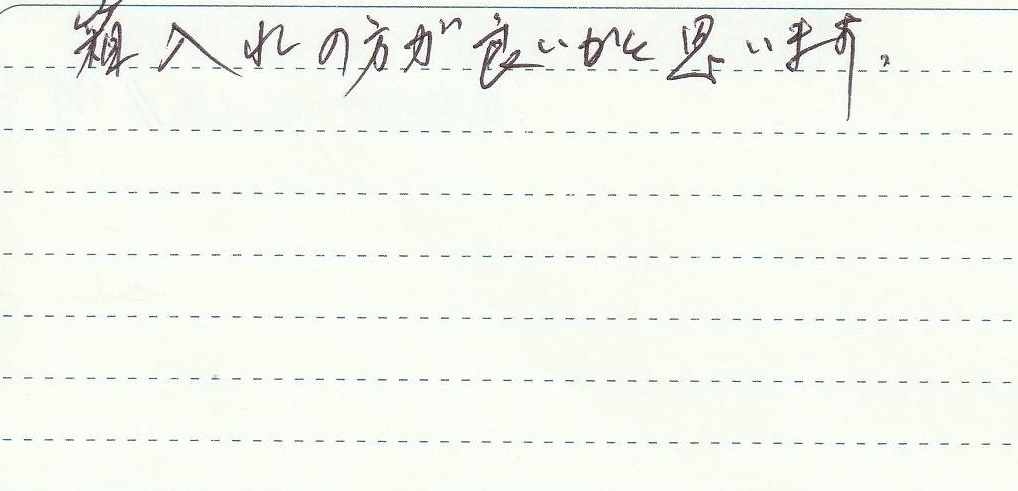 箱入れの方が良いかと思います。